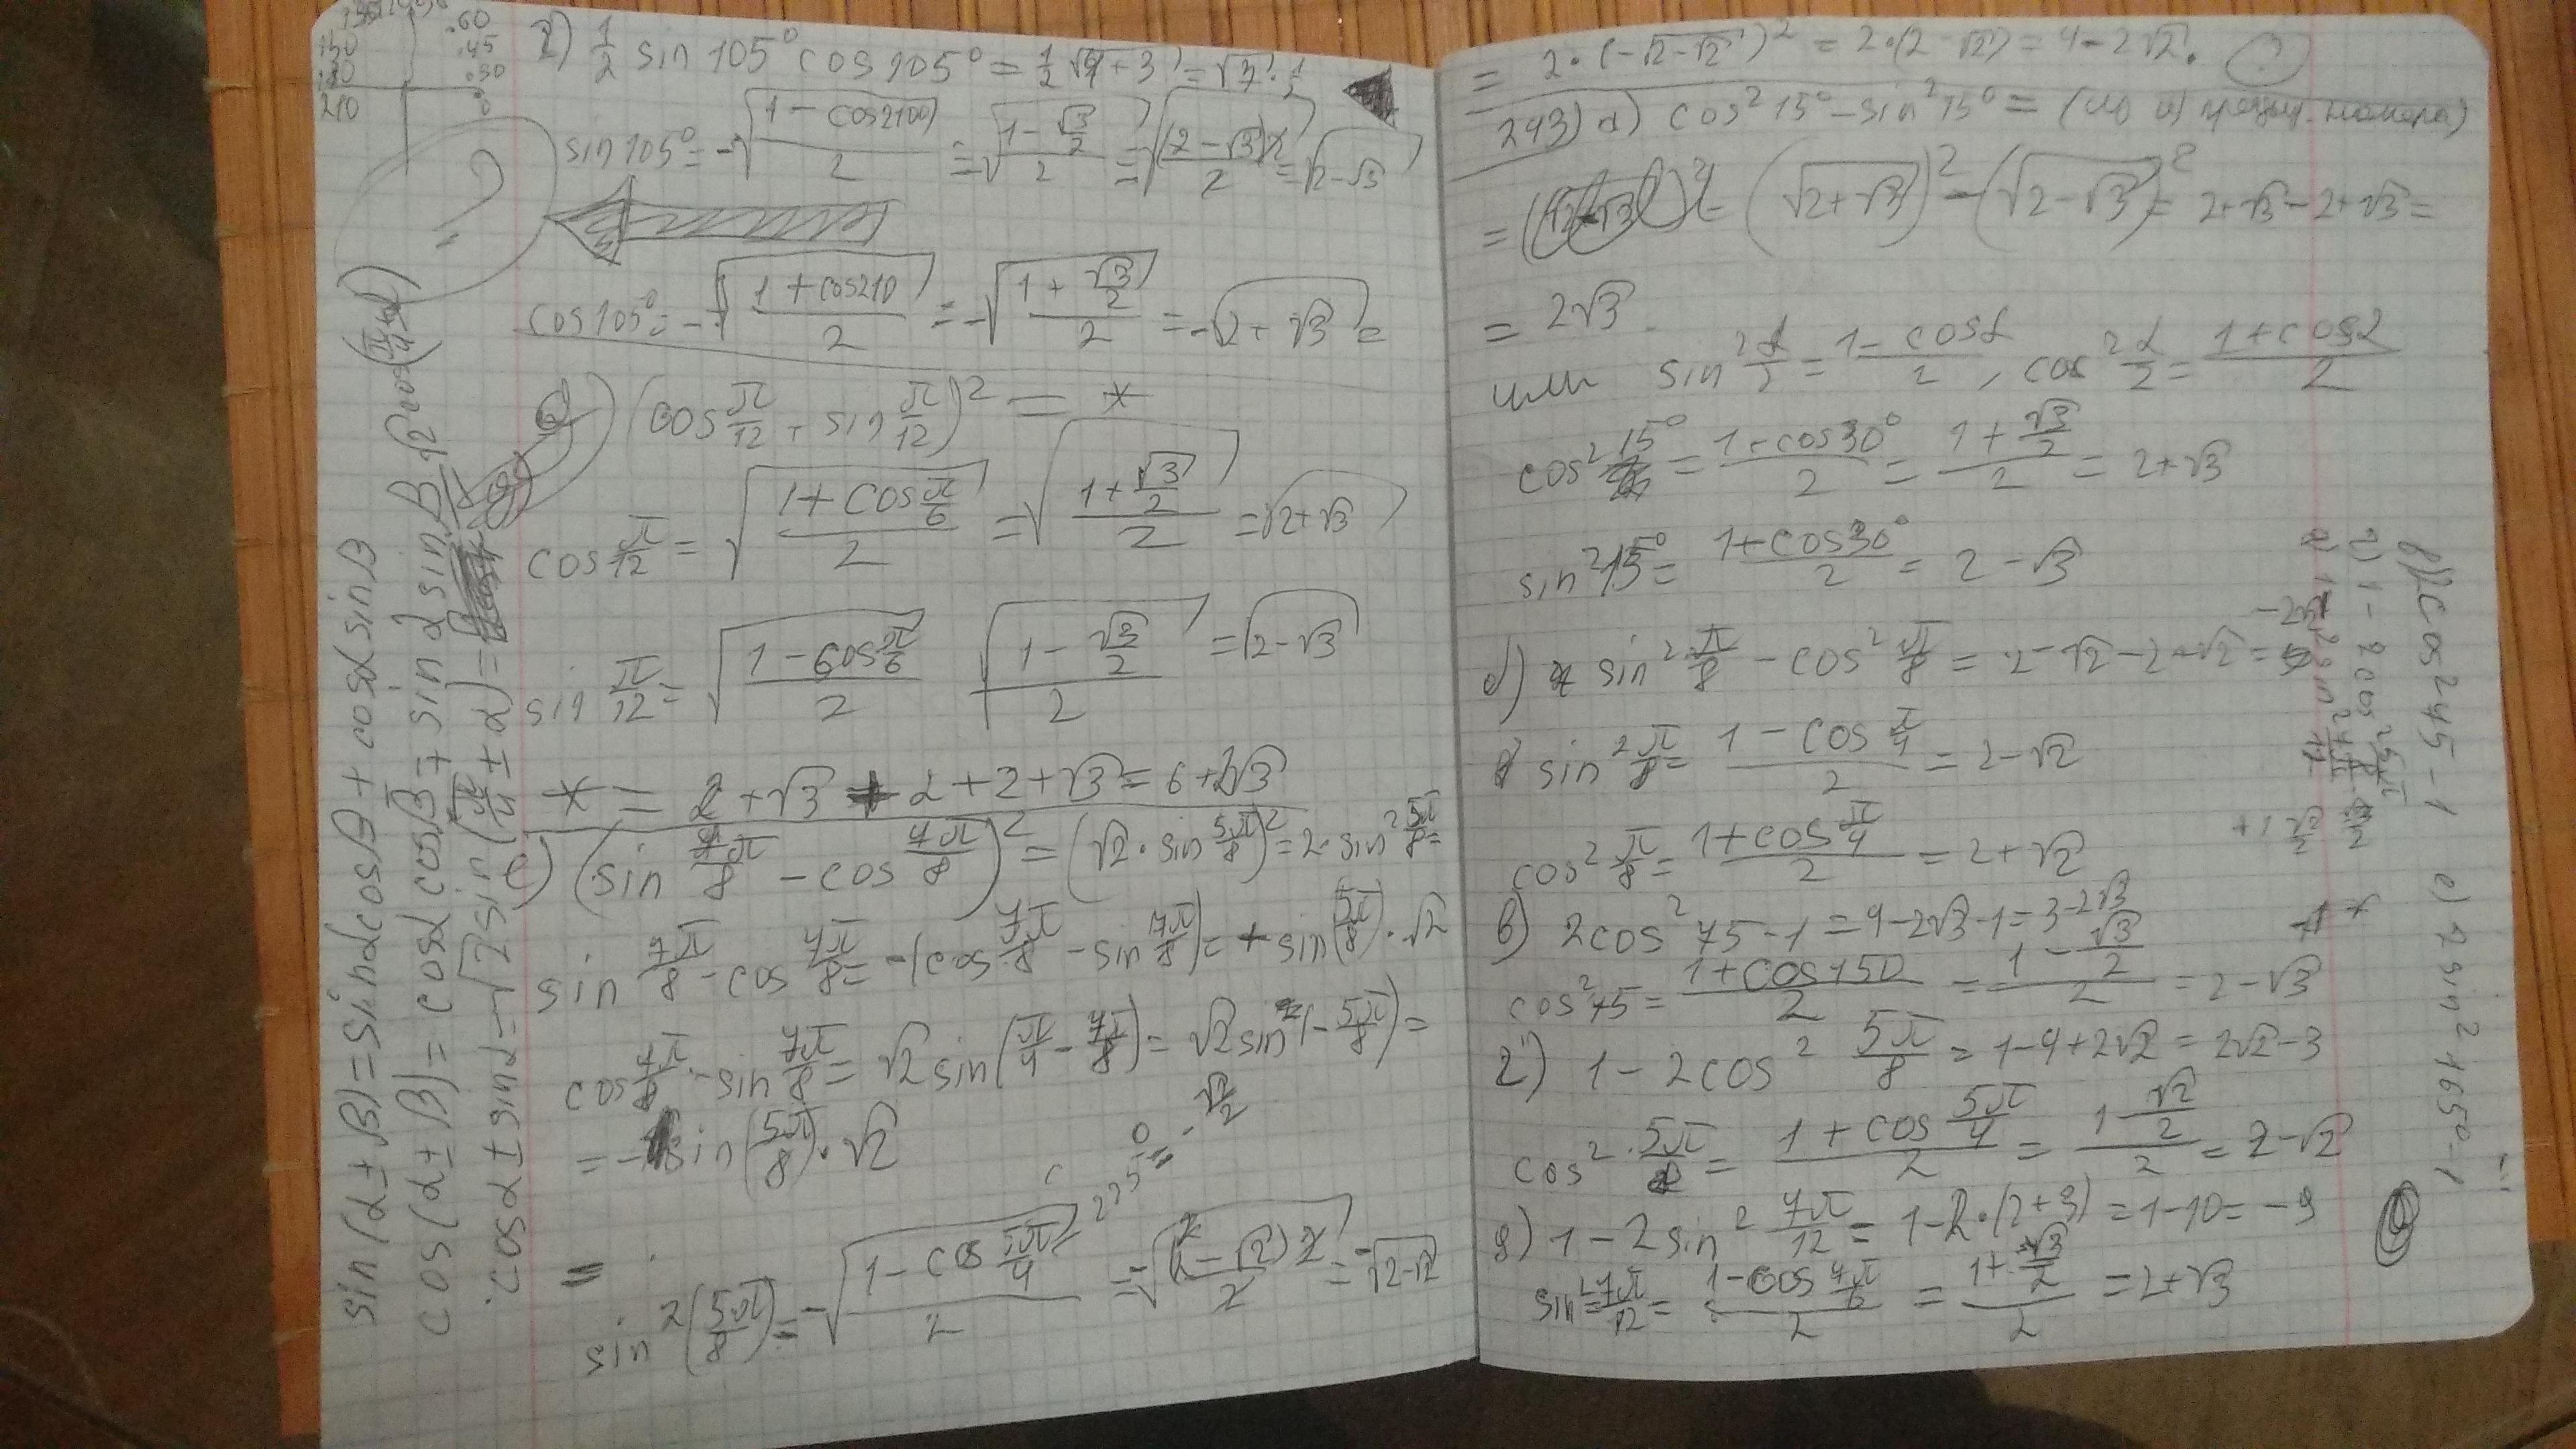 150
120
210
.60
.45
.30
0
г) 1/2 sin 105° cos 105° = 1/2 √4+3 = √7 · 1/2
sin 105° = -√((1 - cos 210°)/2) = -√((1 - √3/2)/2) = -√((2 - √3)2/2) = √(2-√3)
cos 105° = -√((1 + cos 210)/2) = -√((1 + √3/2)/2) = -√(2 + √3) =
д) (cos π/12 + sin π/12)² = *
cos π/12 = √((1 + cos π/6)/2) = √((1 + √3/2)/2) = √(2+√3)
sin π/12 = √((1 - cos π/6)/2) √((1 - √3/2)/2) = √(2-√3)
* = 2 + √3 + 2 + 2 + √3 = 6 + 2√3
е) (sin 7π/8 - cos 7π/8)² = (√2 · sin 5π/8)² = 2 · sin² 5π/8 =
sin 7π/8 - cos 7π/8 = -(cos 7π/8 - sin 7π/8) = + sin(5π/8) · √2
cos 7π/8 - sin 7π/8 = √2 sin(π/4 - 7π/8) = √2 sin(-5π/8) =
= - sin(5π/8) · √2
225° = -√2/2
=
sin²(5π/8) = -√((1 - cos 5π/4)/2) = -√((2 - √2)2/2) = -√(2-√2)
sin(α ± β) = sinα cosβ ± cosα sinβ
cos(α ± β) = cosα cosβ ∓ sinα sinβ
cosα ± sinα = √2 sin(π/4 ± α) = √2 cos(π/4 ∓ α)
= 2 · (-√(2-√2))² = 2 · (2 - √2) = 4 - 2√2.
243) а) cos² 15° - sin² 15° = (из а) предыд. номера)
= (√(2+√3))² - (√(2-√3))² = 2+√3 - 2+√3 =
= 2√3
или sin² α/2 = (1 - cosα)/2, cos² α/2 = (1 + cosα)/2
cos² 15° = (1 - cos 30°)/2 = (1 + √3/2)/2 = 2 + √3
sin² 15° = (1 + cos 30°)/2 = 2 - √3
б) sin² π/8 - cos² π/8 = 2 - √2 - 2 - √2 = -2√2
sin² π/8 = (1 - cos π/4)/2 = 2 - √2
cos² π/8 = (1 + cos π/4)/2 = 2 + √2
в) 2cos² 75 - 1 = 4 - 2√3 - 1 = 3 - 2√3
cos² 75 = (1 + cos 150)/2 = (1 - √3/2)/2 = 2 - √3
г) 1 - 2cos² 5π/8 = 1 - 4 + 2√2 = 2√2 - 3
cos² 5π/8 = (1 + cos 5π/4)/2 = (1 - √2/2)/2 = 2 - √2
д) 1 - 2 sin² 7π/12 = 1 - 2 · (2+3) = 1 - 10 = -9
sin² 7π/12 = (1 - cos 7π/6)/2 = (1 + √3/2)/2 = 2 + √3
в) 2cos² 75 - 1
е) 2 sin² 165° - 1
г) 1 - 2cos² 5π/8
д) 1 - 2 sin² 7π/12